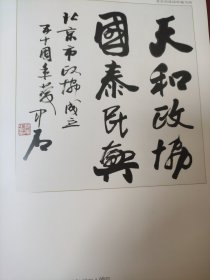 天和政協
國泰民興
北京市政協成立
五十周年 中石